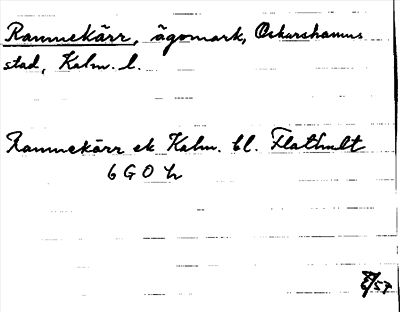 Rammekärr, ägomark, Oskarshamns
stad, Kalm. l.
Rammekärr ek Kalm. bl. Flathult
6 G O h